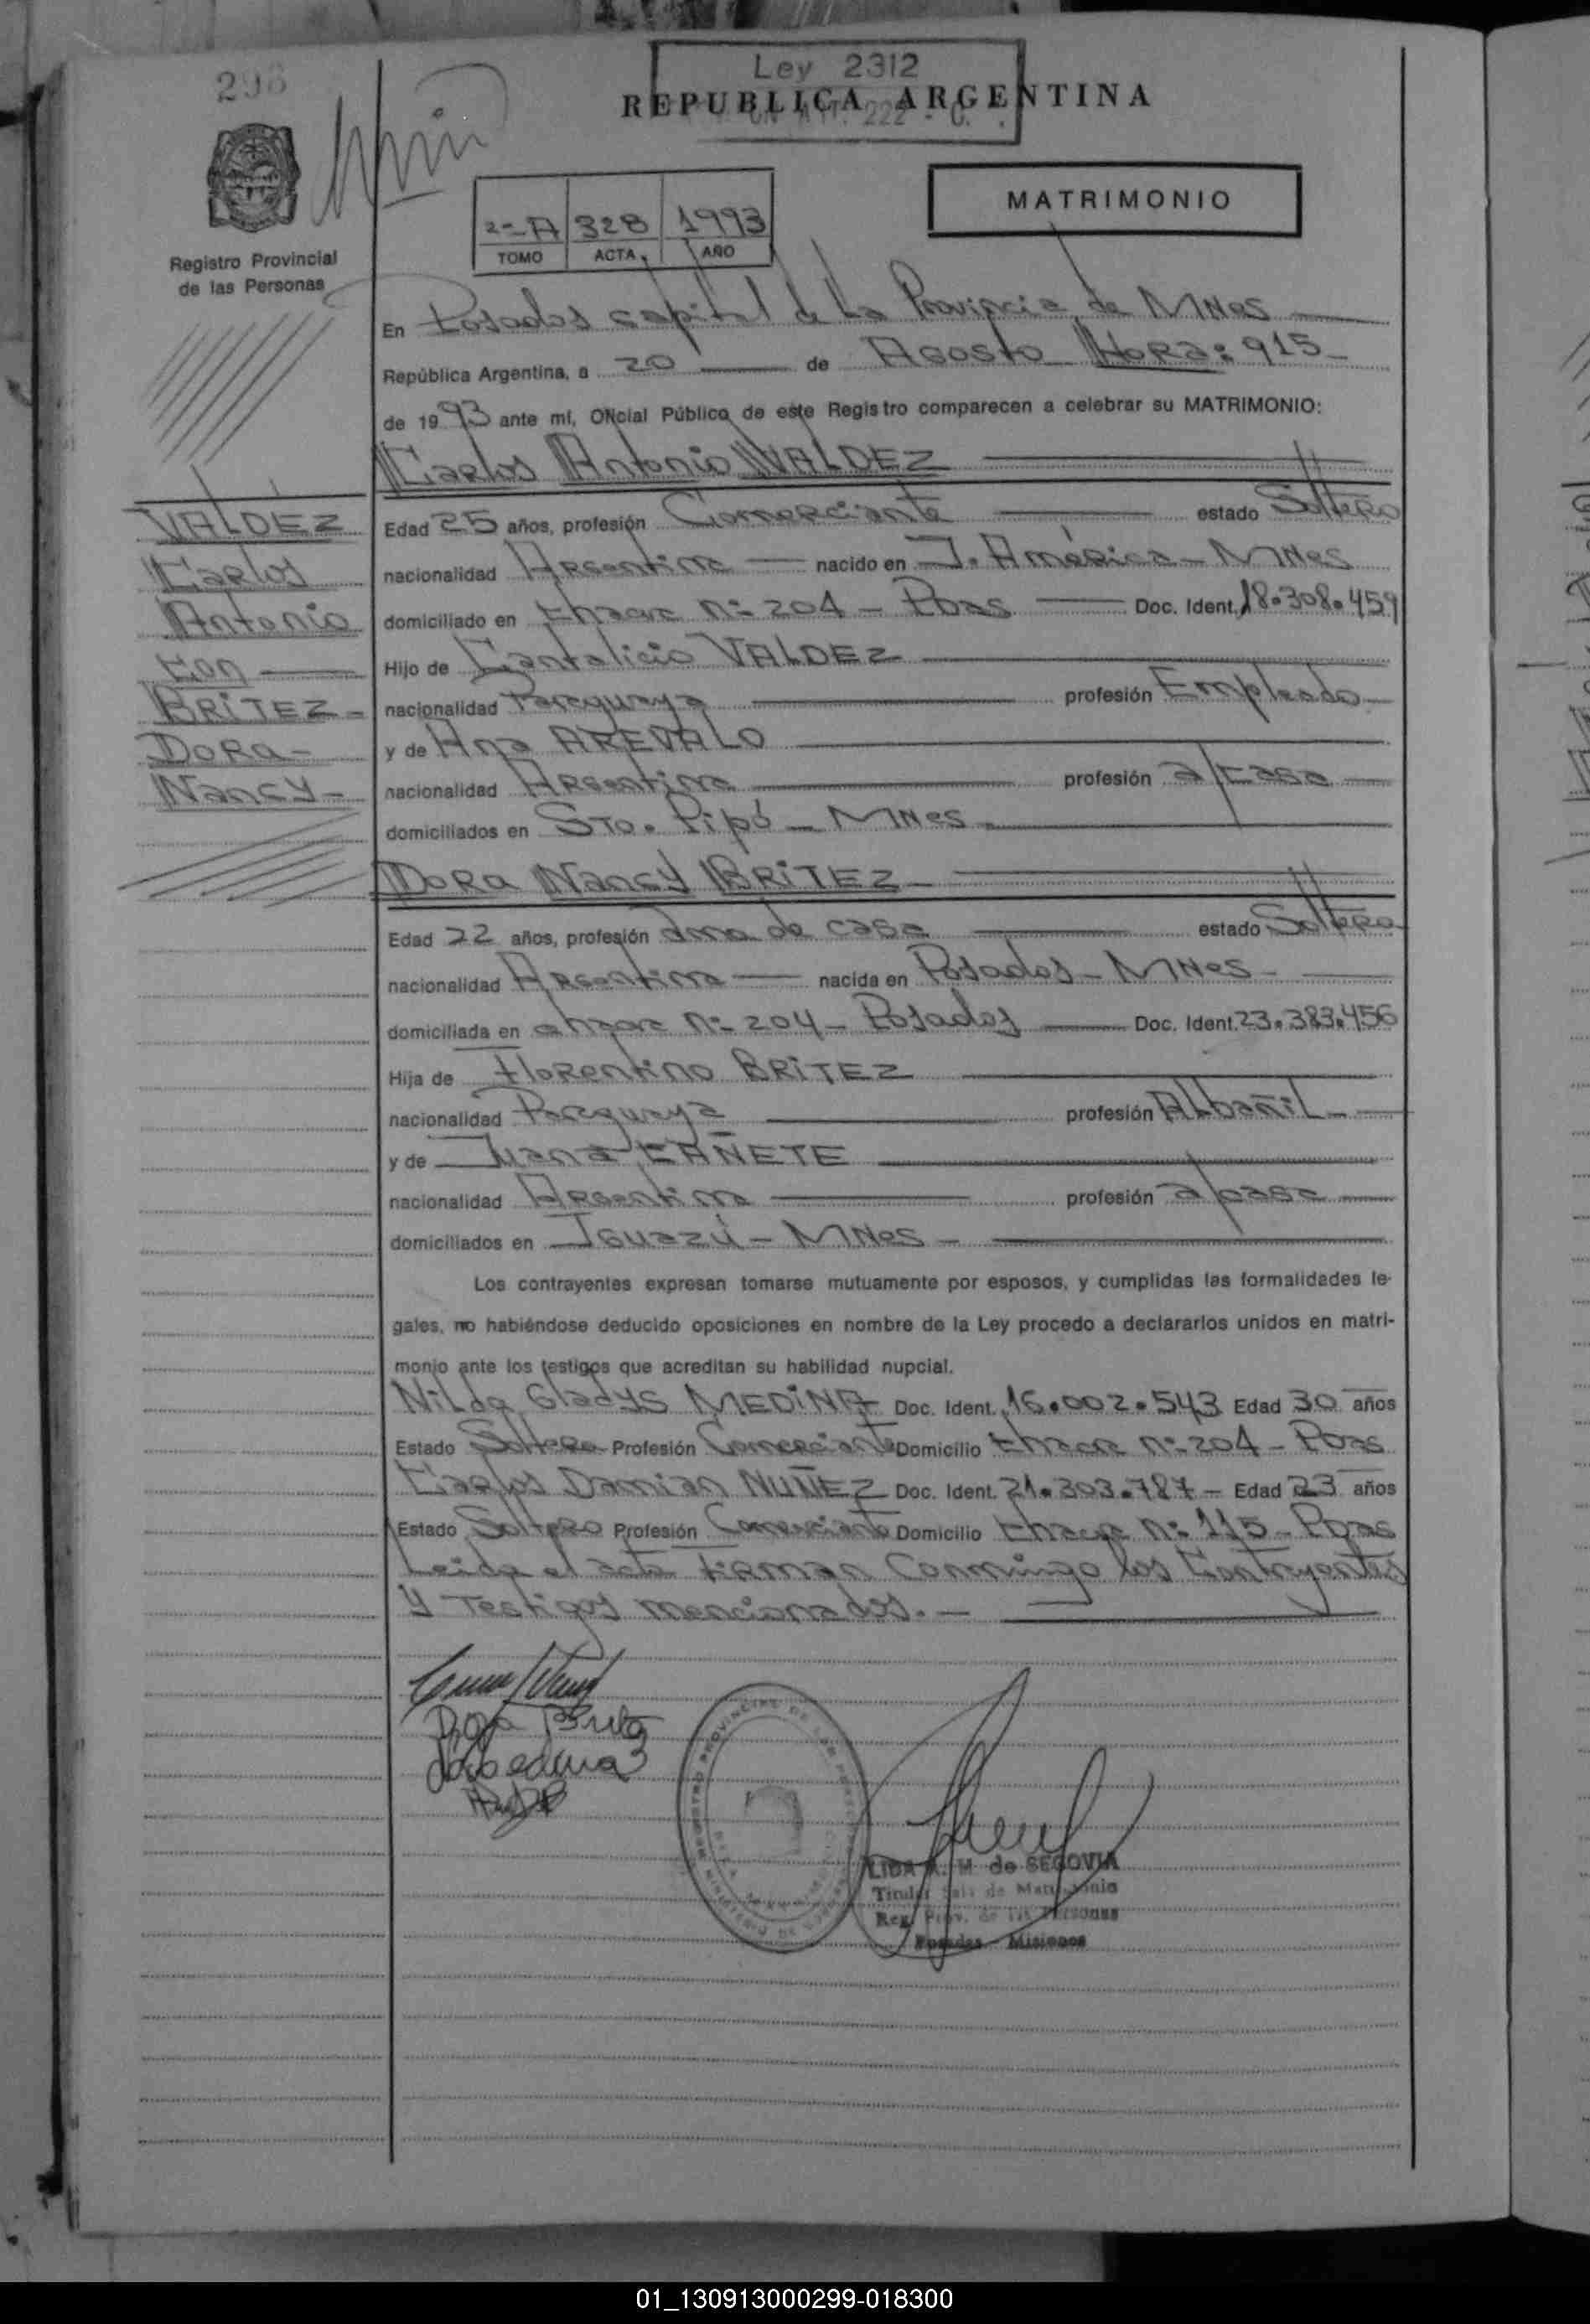 Ley 2312
REPUBLICA ARGENTINA
MATRIMONIO
2º A 328 1993
TOMO ACTA AÑO
Registro Provincial
de las Personas
En Posadas capital de La Provincia de MNes
República Argentina, a 20 de Agosto Hora: 915
de 1993 ante mí, Oficial Público de este Registro comparecen a celebrar su MATRIMONIO:
Carlos Antonio VALDEZ
VALDEZ
Carlos
Antonio
Con
BRiTEZ-
DORa-
Nancy-
Edad 25 años, profesión Comerciante estado Soltero
nacionalidad Argentina nacido en J. América - MNes
domiciliado en Chacra Nº 204 - Pdas Doc. Ident. 18.308.459
Hijo de Cantalicio VALDEZ
nacionalidad Paraguaya profesión Empleado
y de Ana AREVALO
nacionalidad Argentina profesión a/casa
domiciliados en Sto. Pipó - MNes
DORa Nancy BRiTEZ
Edad 22 años, profesión ama de casa estado Soltera
nacionalidad Argentina nacida en Posadas - MNes
domiciliada en chacra Nº 204 - Posadas Doc. Ident. 23.383.456
Hija de Florentino BRiTEZ
nacionalidad Paraguaya profesión Albañil
y de Juana CAÑETE
nacionalidad Argentina profesión a/casa
domiciliados en Iguazú - MNes
Los contrayentes expresan tomarse mutuamente por esposos, y cumplidas las formalidades le-
gales, no habiéndose deducido oposiciones en nombre de la Ley procedo a declararlos unidos en matri-
monio ante los testigos que acreditan su habilidad nupcial.
Nilda Gladys MEDiNA Doc. Ident. 16.002.543 Edad 30 años
Estado Soltera Profesión Comerciante Domicilio Chacra Nº 204 - Pdas
Carlos Damian NUÑEZ Doc. Ident. 21.303.787 - Edad 23 años
Estado Soltero Profesión Comerciante Domicilio Chacra Nº 115 - Pdas
Leida el acta Firman Conmingo los Contrayentes
y Testigos mencionados.-
de SEGOVIA
Titular Sala de Matrimonio
Reg. Prov. de las Personas
Posadas - Misiones
01_130913000299-018300